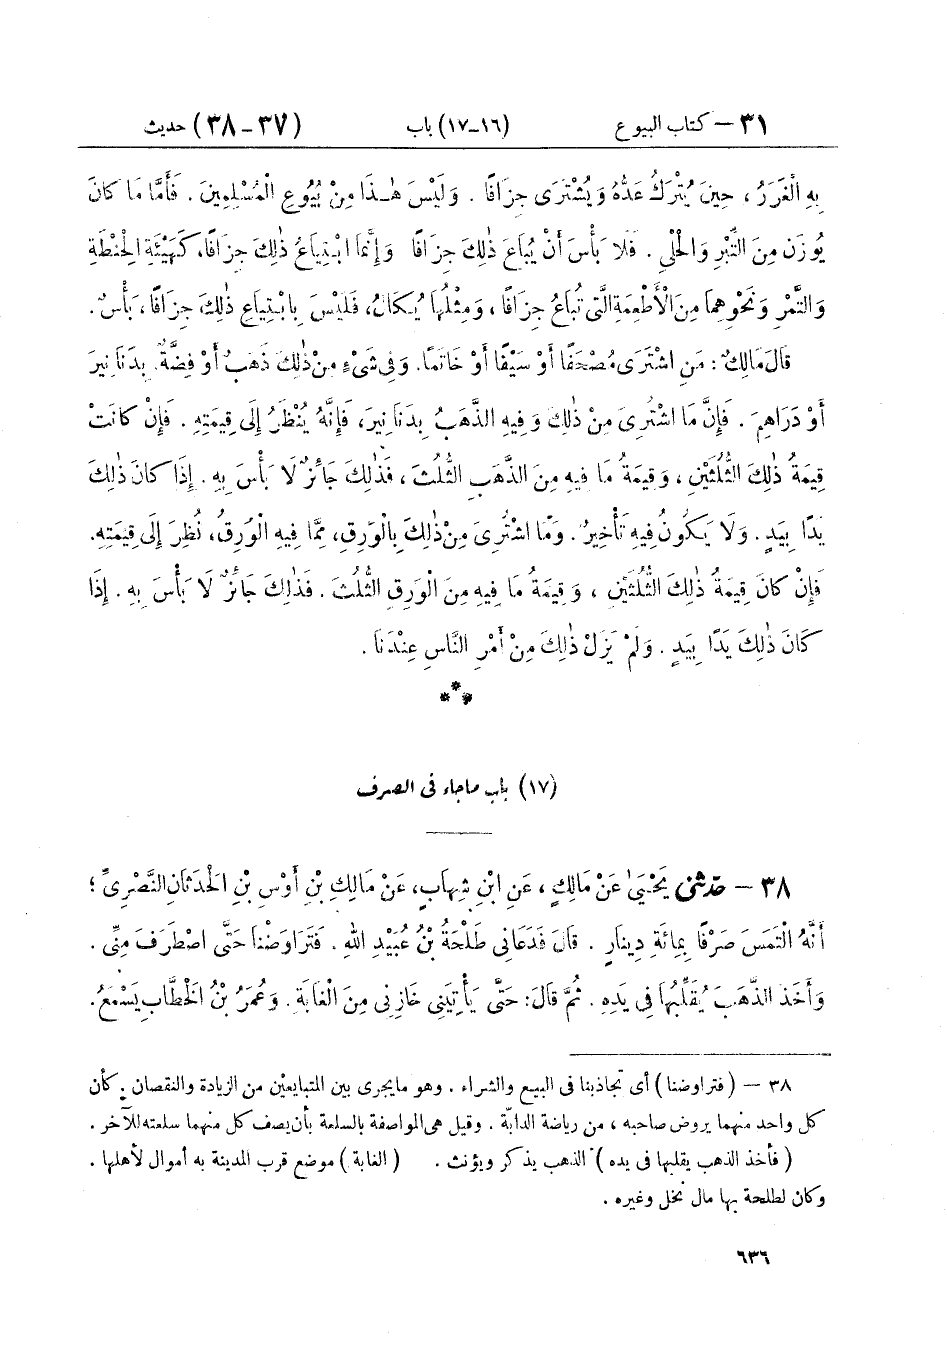 ٣١ – كتاب البيوع (١٦–١٧) باب (٣٧–٣٨) حديث
بِهِ الْغَرَرُ ، حِينَ يُتْرَكُ عَدُّهُ وَيُشْتَرَى جِزَافًا . وَلَيْسَ هٰذَا مِنْ بُيُوعِ الْمُسْلِمِينَ . فَأَمَّا مَا كَانَ
يُوزَن مِنَ التِّبْرِ وَالْحَلْيِ . فَلَا بَأْسَ أَنْ يُبَاعَ ذٰلِكَ جِزَافًا وَإِنَّمَا ابْتِيَاعُ ذٰلِكَ جِزَافًا، كَهَيْئَةِ الْحِنْطَةِ
وَالتَّمْرِ وَنَحْوِهِمَا مِنَ الْأَطْعِمَةِ الَّتِي تُبَاعُ جِزَافًا ، وَمِثْلُهَا يُكَالُ، فَلَيْسَ بِابْتِيَاعِ ذٰلِكَ جِزَافًا، بَأْسٌ .
قَالَ مَالِكٌ : مَنِ اشْتَرَى مُصْحَفًا أَوْ سَيْفًا أَوْ خَاتَمًا. وَفِي شَيْءٍ مِنْ ذٰلِكَ ذَهَبٌ أَوْ فِضَّةٌ. بِدَنَانِيرَ
أَوْ دَرَاهِمَ . فَإِنَّ مَا اشْتُرِيَ مِنْ ذٰلِكَ وَفِيهِ الذَّهَبُ بِدَنَانِيرَ، فَإِنَّهُ يُنْظَرُ إِلَى قِيمَتِهِ . فَإِنْ كَانَتْ
قِيمَةُ ذٰلِكَ الثُّلُثَيْنِ ، وَقِيمَةُ مَا فِيهِ مِنَ الذَّهَبِ الثُّلُثَ ، فَذٰلِكَ جَائِزٌ لَا بَأْسَ بِهِ . إِذَا كَانَ ذٰلِكَ
يَدًا بِيَدٍ . وَلَا يَكُونُ فِيهِ تَأْخِيرٌ . وَمَا اشْتُرِيَ مِنْ ذٰلِكَ بِالْوَرِقِ، مِمَّا فِيهِ الْوَرِقُ، نُظِرَ إِلَى قِيمَتِهِ.
فَإِنْ كَانَ قِيمَةُ ذٰلِكَ الثُّلُثَيْنِ ، وَقِيمَةُ مَا فِيهِ مِنَ الْوَرِقِ الثُّلُثَ . فَذٰلِكَ جَائِزٌ لَا بَأْسَ بِهِ . إِذَا
كَانَ ذٰلِكَ يَدًا بِيَدٍ . وَلَمْ يَزَلْ ذٰلِكَ مِنْ أَمْرِ النَّاسِ عِنْدَنَا .
***
(١٧) باب ماجاء فى الصرف
٣٨ – حَدَّثَنِي يَحْيَىٰ عَنْ مَالِكٍ ، عَنِ ابْنِ شِهَابٍ، عَنْ مَالِكِ بْنِ أَوْسِ بْنِ الْحَدَثَانِ النَّصْرِيِّ ؛
أَنَّهُ الْتَمَسَ صَرْفًا بِمِائَةِ دِينَارٍ . قَالَ فَدَعَانِي طَلْحَةُ بْنُ عُبَيْدِ اللهِ . فَتَرَاوَضْنَا حَتَّى اصْطَرَفَ مِنِّي .
وَأَخَذَ الذَّهَبَ يُقَلِّبُهَا فِي يَدِهِ . ثُمَّ قَالَ: حَتَّى يَأْتِيَنِي خَازِنِي مِنَ الْغَابَةِ . وَعُمَرُ بْنُ الْخَطَّابِ يَسْمَعُ.
٣٨ – (فتراوضنا) أى تجاذبنا فى البيع والشراء . وهو مايجرى بين المتبايعيْن من الزيادة والنقصان . كأن
كل واحد منهما يروض صاحبه ، من رياضة الدابّة . وقيل هى المواصفة بالسلعة بأن يصف كل منهما سلعته للآخر .
(فأخذ الذهب يقلبها فى يده) الذهب يذكر ويؤنث . (الغابة) موضع قرب المدينة به أموال لأهلها .
وكان لطلحة بها مال نخل وغيره .
٦٣٦